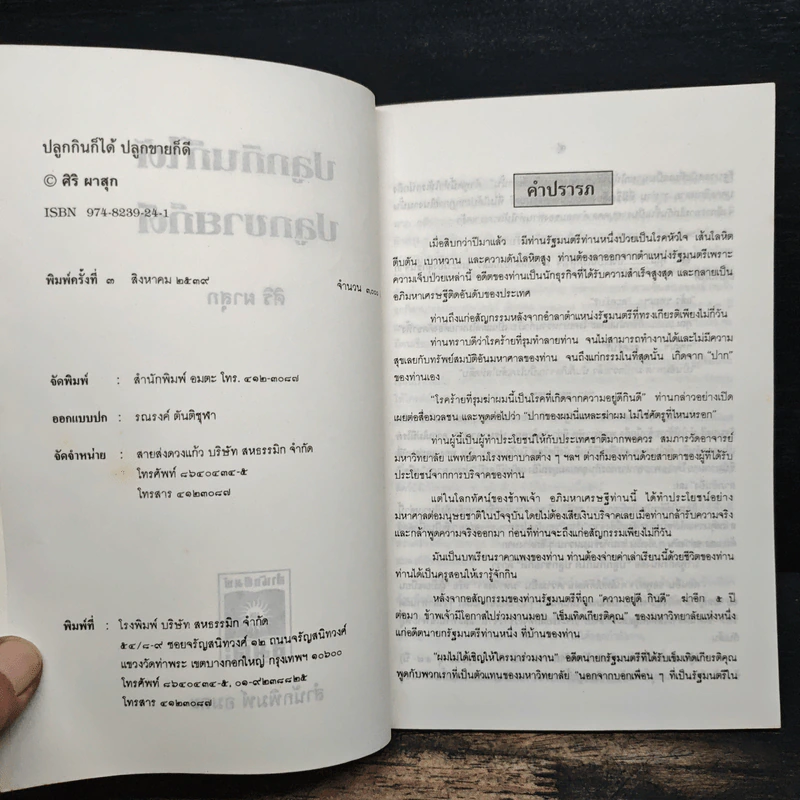 ปลูกกินก็ได้ ปลูกขายก็ดี
© ศิริ ผาสุก
ISBN 974-8239-24-1
พิมพ์ครั้งที่ ๓ สิงหาคม ๒๕๓๙
จำนวน ๓,๐๐๐
จัดพิมพ์ : สำนักพิมพ์ อมตะ โทร. ๔๑๒-๓๐๘๗
ออกแบบปก : รณรงค์ ตันติชูฬา
จัดจำหน่าย : สายส่งดวงแก้ว บริษัท สหธรรมิก จำกัด
โทรศัพท์ ๘๖๔๐๔๓๔-๕
โทรสาร ๔๑๒๓๐๘๗
พิมพ์ที่ : โรงพิมพ์ บริษัท สหธรรมิก จำกัด
๕๔/๘-๙ ซอยจรัญสนิทวงศ์ ๑๒ ถนนจรัญสนิทวงศ์
แขวงวัดท่าพระ เขตบางกอกใหญ่ กรุงเทพฯ ๑๐๖๐๐
โทรศัพท์ ๘๖๔๐๔๓๔-๕, ๐๑-๙๒๓๘๘๒๕
โทรสาร ๔๑๒๓๐๘๗
คำปรารภ
เมื่อสิบกว่าปีมาแล้ว มีท่านรัฐมนตรีท่านหนึ่งป่วยเป็นโรคหัวใจ เส้นโลหิต
ตีบตัน เบาหวาน และความดันโลหิตสูง ท่านต้องลาออกจากตำแหน่งรัฐมนตรีเพราะ
ความเจ็บป่วยเหล่านี้ อดีตของท่านเป็นนักธุรกิจที่ได้รับความสำเร็จสูงสุด และกลายเป็น
อภิมหาเศรษฐีติดอันดับของประเทศ
ท่านถึงแก่อสัญกรรมหลังจากอำลาตำแหน่งรัฐมนตรีที่ทรงเกียรติเพียงไม่กี่วัน
ท่านทราบดีว่าโรคร้ายที่รุมทำลายท่าน จนไม่สามารถทำงานได้และไม่มีความ
สุขเลยกับทรัพย์สมบัติอันมหาศาลของท่าน จนถึงแก่กรรมในที่สุดนั้น เกิดจาก "ปาก"
ของท่านเอง
"โรคร้ายที่รุมฆ่าผมนี้เป็นโรคที่เกิดจากความอยู่ดีกินดี" ท่านกล่าวอย่างเปิด
เผยต่อสื่อมวลชน และพูดต่อไปว่า "ปากของผมนี่แหละฆ่าผม ไม่ใช่ศัตรูที่ไหนหรอก"
ท่านผู้นี้เป็นผู้ทำประโยชน์ให้กับประเทศชาติมากพอควร สมภารวัดอาจารย์
มหาวิทยาลัย แพทย์ตามโรงพยาบาลต่าง ๆ ฯลฯ ต่างก็มองท่านด้วยสายตาของผู้ที่ได้รับ
ประโยชน์จากการบริจาคของท่าน
แต่ในโลกทัศน์ของข้าพเจ้า อภิมหาเศรษฐีท่านนี้ ได้ทำประโยชน์อย่าง
มหาศาลต่อมนุษยชาติในปัจจุบันโดยไม่ต้องเสียเงินบริจาคเลยเมื่อท่านกล้ารับความจริง
และกล้าพูดความจริงออกมา ก่อนที่ท่านจะถึงแก่อสัญกรรมเพียงไม่กี่วัน
มันเป็นบทเรียนราคาแพงของท่าน ท่านต้องจ่ายค่าเล่าเรียนนี้ด้วยชีวิตของท่าน
ท่านได้เป็นครูสอนให้เรารู้จักกิน
หลังจากอสัญกรรมของท่านรัฐมนตรีที่ถูก "ความอยู่ดี กินดี" ฆ่าอีก ๕ ปี
ต่อมา ข้าพเจ้ามีโอกาสไปร่วมงานมอบ "เข็มเทิดเกียรติคุณ" ของมหาวิทยาลัยแห่งหนึ่ง
แก่อดีตนายกรัฐมนตรีท่านหนึ่ง ที่บ้านของท่าน
"ผมไม่ได้เชิญให้ใครมาร่วมงาน" อดีตนายกรัฐมนตรีที่ได้รับเข็มเทิดเกียรติคุณ
พูดกับพวกเราที่เป็นตัวแทนของมหาวิทยาลัย "นอกจากบอกเพื่อน ๆ ที่เป็นรัฐมนตรีใน